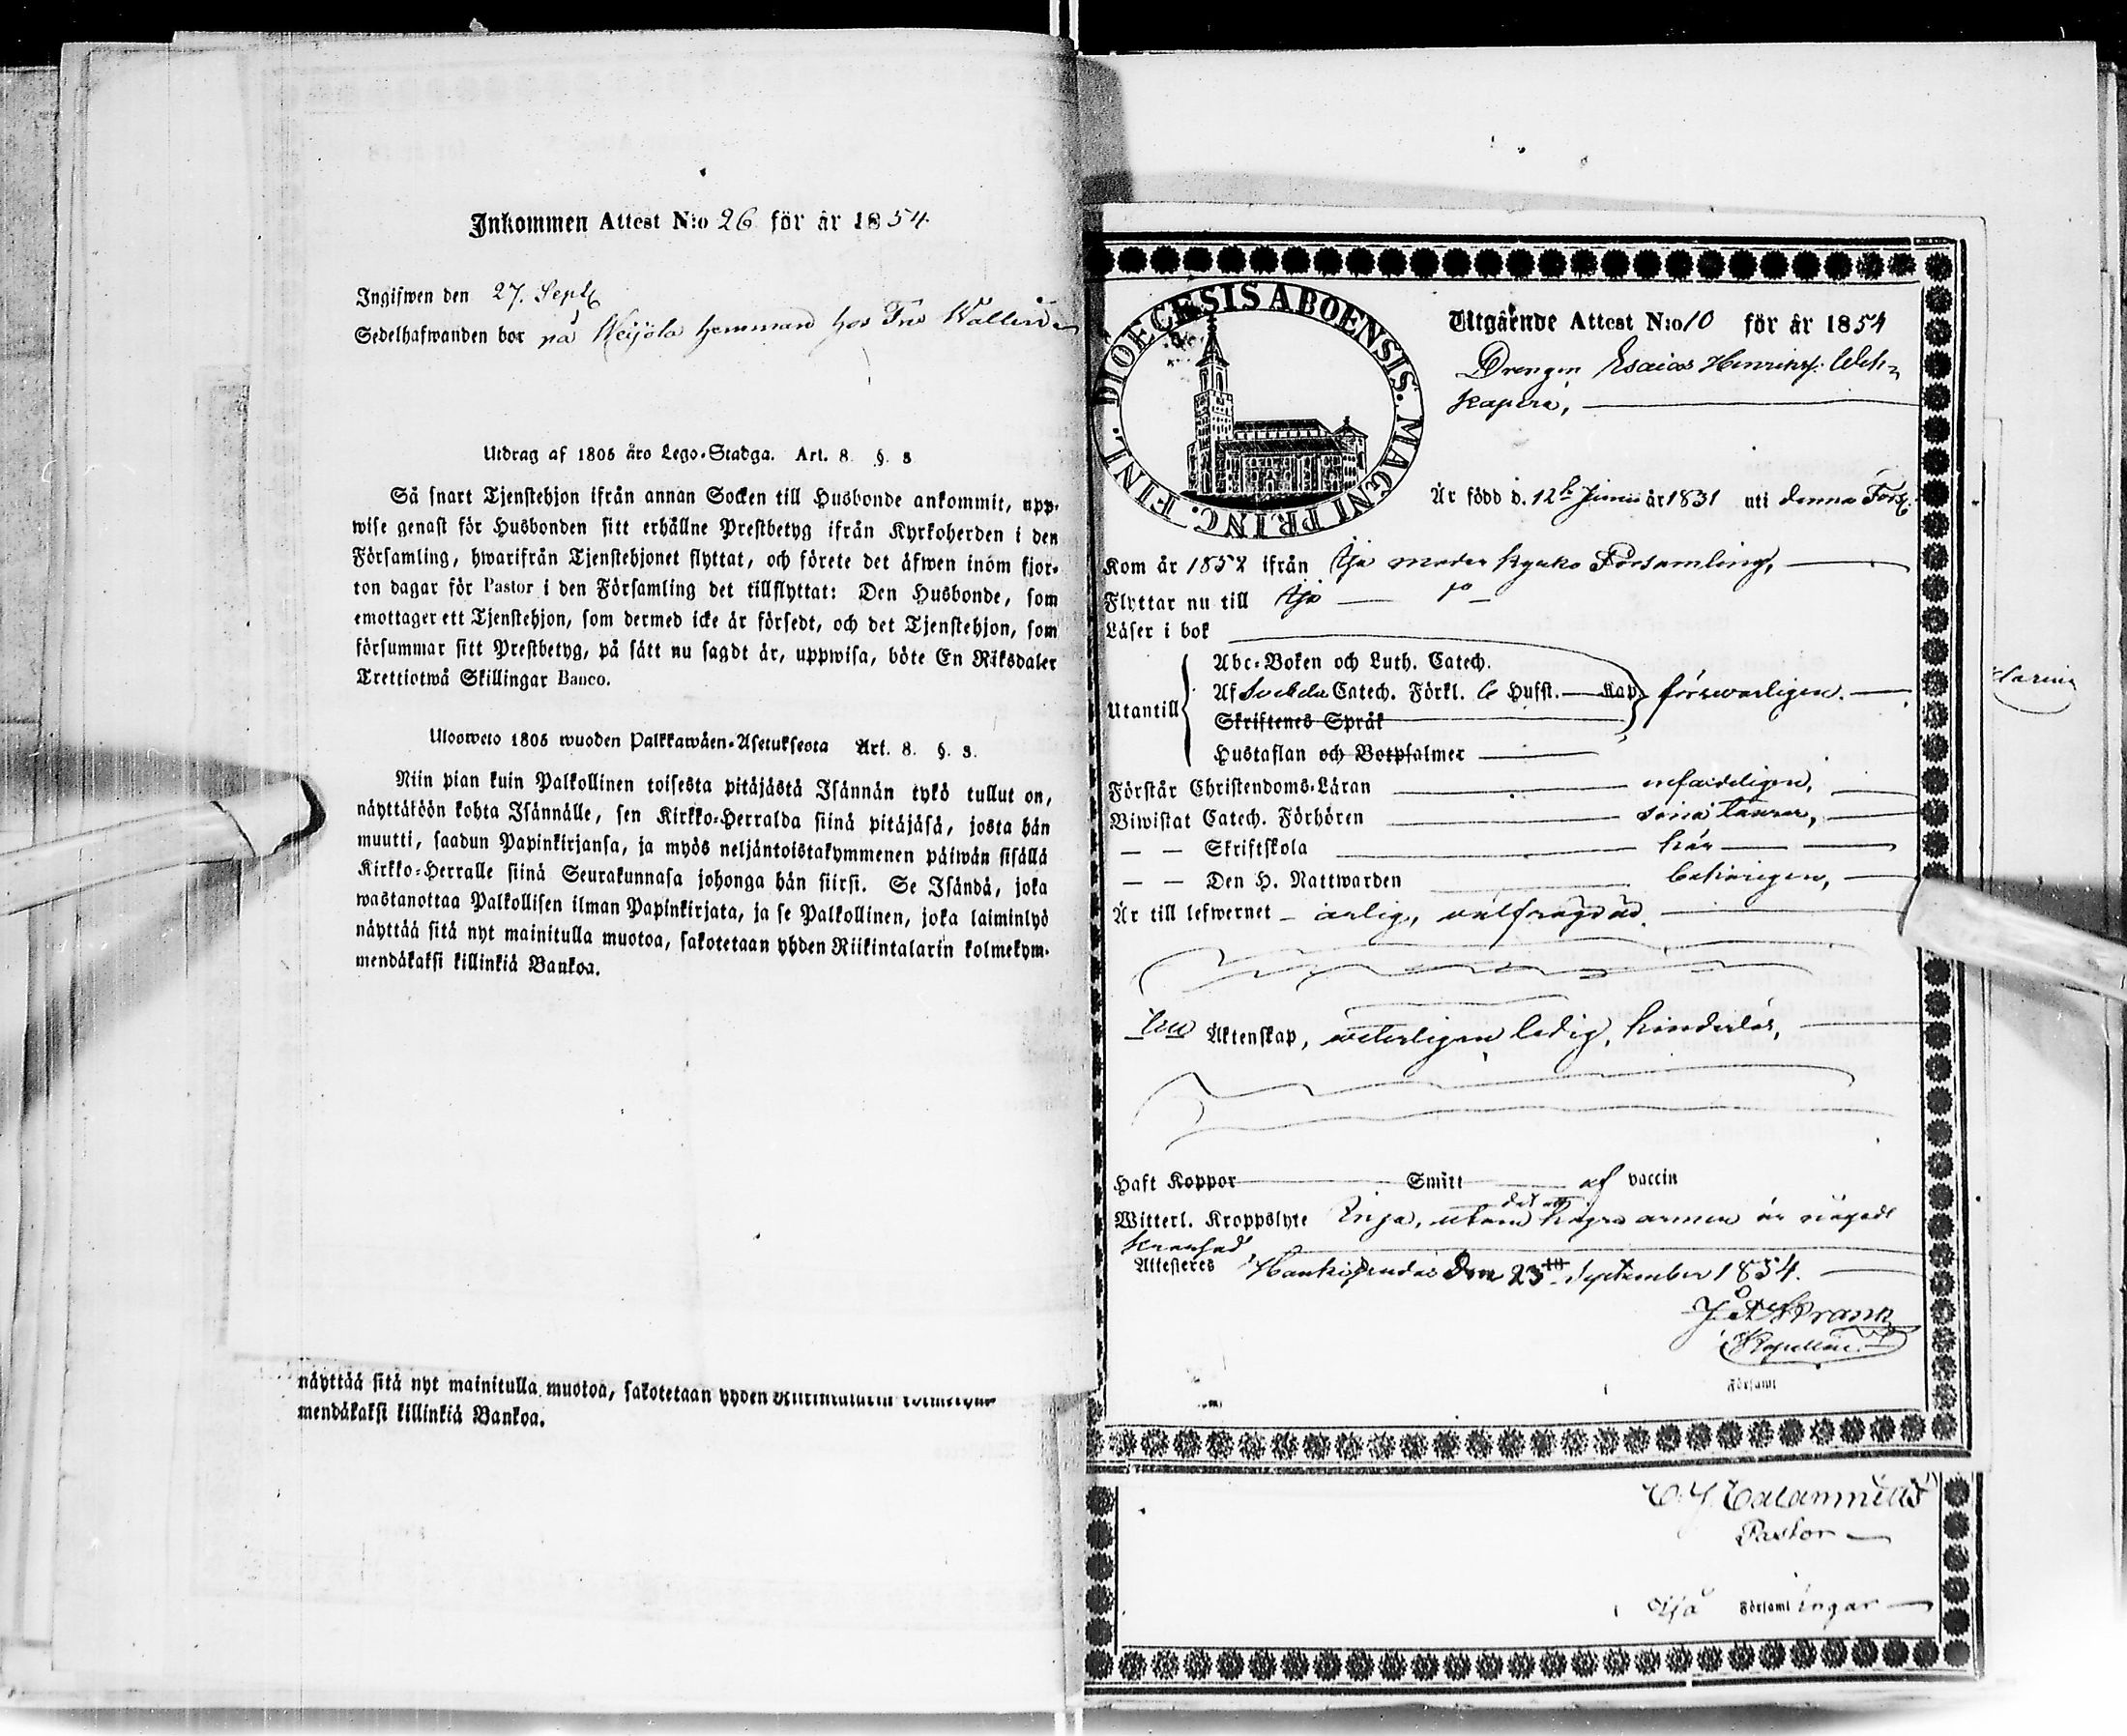 Inkommen Attest N:o 26 för år 1854
Ingifwen den 27. Sept
Sedelhafwanden bor på Weijola hemman hos Fru Wallen
Utdrag af 1805 års Lego-Stadga. Art. 8. §. 3
Så snart Tjenstehjon ifrån annan Socken till Husbonde ankommit, upp-
wise genast för Husbonden sitt erhållne Prestbetyg ifrån Kyrkoherden i den
Församling, hwarifrån Tjenstehjonet flyttat, och förete det äfwen inom fjor-
ton dagar för Pastor i den Församling det tillflyttat: Den Husbonde, som
emottager ett Tjenstehjon, som dermed icke är försedt, och det Tjenstehjon, som
försummar sitt Prestbetyg, på sätt nu sagdt är, uppwisa, böte En Riksdaler
Trettiotwå Skillingar Banco.
Ulosweto 1805 wuoden Palkkawäen-Asetuksesta Art. 8. §. 3.
Niin pian kuin Palkollinen toisesta pitäjästä Isännän tykö tullut on,
näyttäköön kohta Isännälle, sen Kirkko-Herralda siinä pitäjäsä, josta hän
muutti, saadun Papinkirjansa, ja myös neljäntoistakymmenen päiwän sisällä
Kirkko-Herralle siinä Seurakunnasa johonga hän siirsi. Se Isändä, joka
wastanottaa Palkollisen ilman Papinkirjata, ja se Palkollinen, joka laiminlyö
näyttää sitä nyt mainitulla muotoa, sakotetaan yhden Riikintalarin kolmekym-
mendäkaksi killinkiä Bankoa.
näyttää sitä nyt mainitulla muotoa, sakotetaan yhden Riikintalarin kolmekym-
mendäkaksi killinkiä Bankoa.
DIOECESIS ABOENSIS. MAGNI PRINC. FINL.
Utgående Attest N:o 10 för år 1854
Drengen Esaias Henriksf.
Är född d. 12te Junii år 1831 uti denna Förs.
Kom år 1852 ifrån moder kyrko Församling,
Flyttar nu till
Läser i bok
Abc-Boken och Luth. Catech.
Af Svebelii Catech. Förkl. 6 Hufst. Kap. försvarligen.
Utantill
Skriftenes Språk
Hustaflan och Botpsalmer
Förstår Christendoms-Läran enfaldeligen,
Biwistat Catech. Förhören sina laurer,
— — Skriftskola här
— — Den H. Nattwarden behörigen,
Är till lefwernet ärlig, välfrägdad.
Till Äktenskap, veterligen ledig, hinderlös,
Haft Koppor Smitt af vaccin
Witterl. Kroppslyte Inga, utom det att högra armen är något
Attesteres den 23 September 1854.
Kapellan
Församl
Pastor
Församl ingar